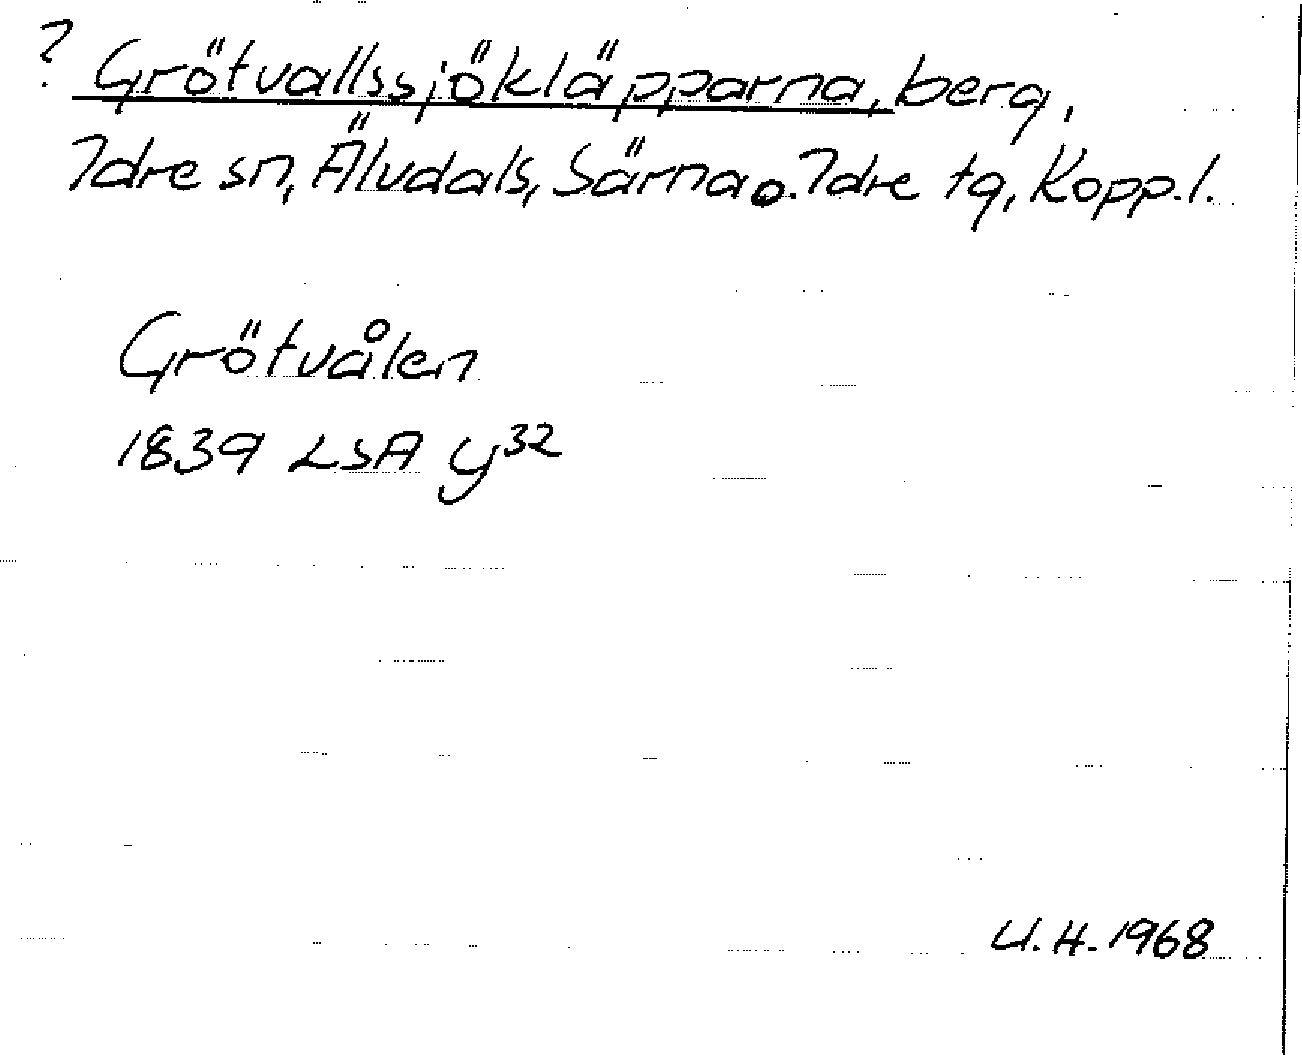 ? Grötvallssjökläpparna, berg,
Idre sn, Älvdals, Särna o. Idre tg, Kopp. l.
Grötvålen
1839 LSA y³²
U. H. 1968